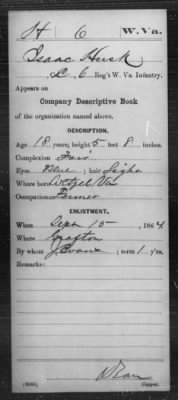 H 6 W. Va.
Isaac Husk
L, 6 Reg't W. Va. Infantry.
Appears on
Company Descriptive Book
of the organization named above.
DESCRIPTION.
Age 18 years; height 5 feet 8 inches.
Complexion Fair
Eyes Blue; hair Light
Where born Wetzel Va
Occupation Farmer
ENLISTMENT.
When Sept 15, 1864
Where Grafton
By whom J Evans; term 1 y'rs.
Remarks:
Copyist.